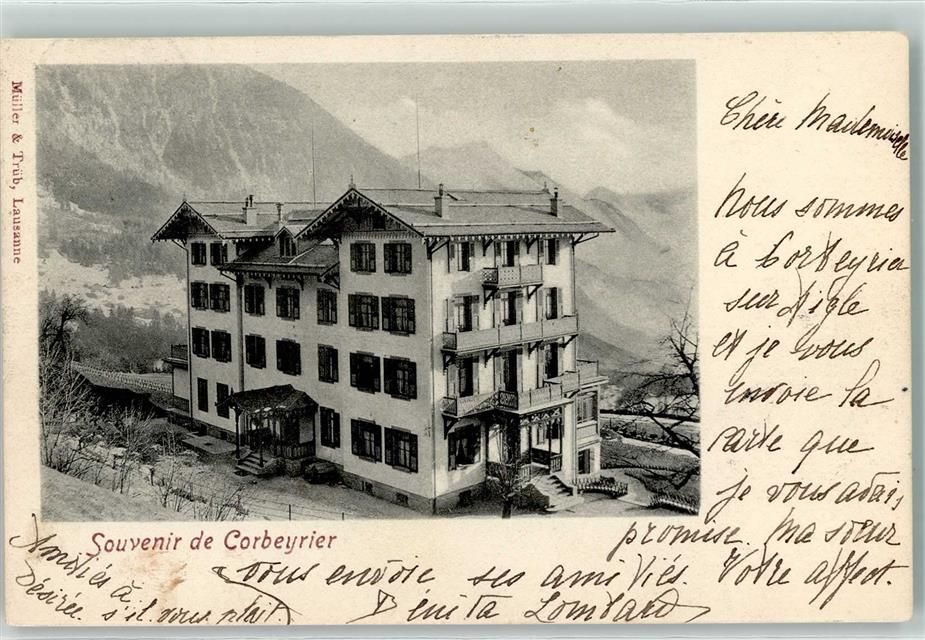 Müller & Trüb, Lausanne
Chère Mademoiselle
Nous sommes
à Corbeyrier
sur Aigle
et je vous
envoie la
carte que
je vous avais
promise. Ma soeur
vous envoie ses amitiés. Votre affect.
Bénita Lombard
Souvenir de Corbeyrier
Amitiés à
Désirée s'il vous plaît.